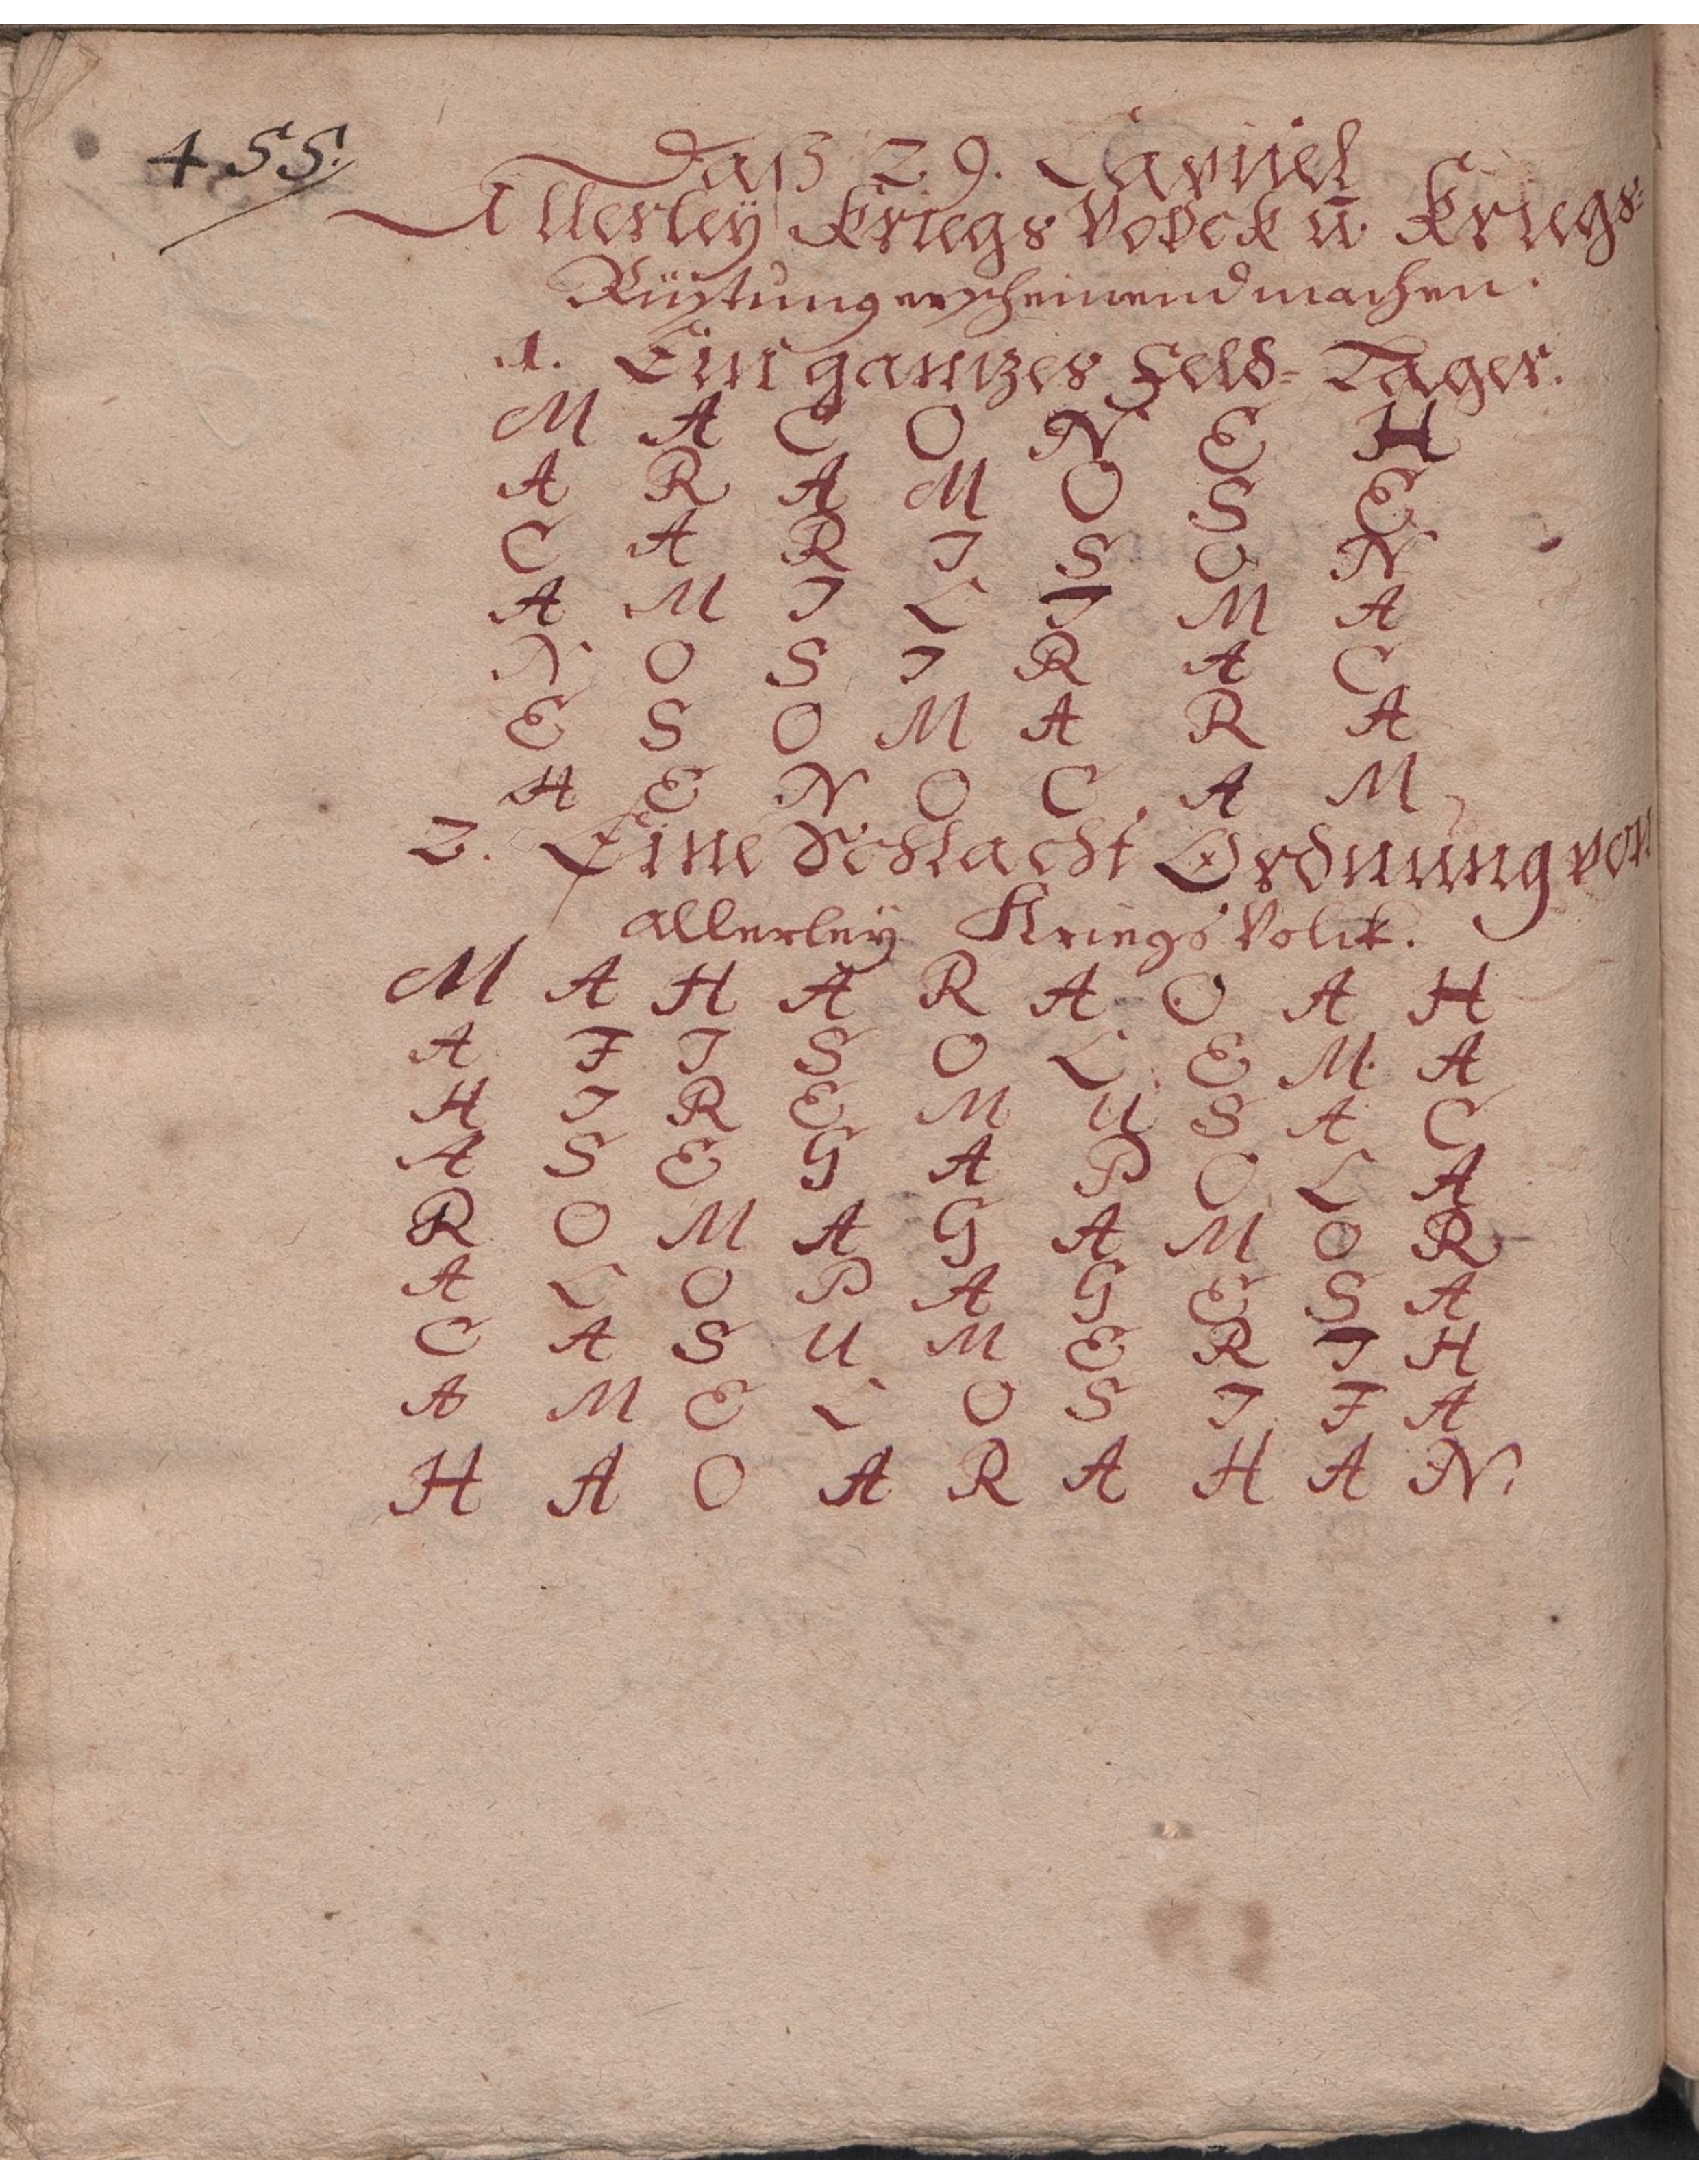 455.
Daß 29. Capitel
Allerleÿ Kriegs Volck ū. Kriegs=
Rüstung erscheinend machen.
1. Ein gantzes Feld= Lager.
M A C O N E H
A R A M O S E
C A R I S O N
A M I L I M A
N O S I R A C
E S O M A R A
H E N O C A M
2. Eine Schlacht Ordnung von
allerleÿ Kriegs Volck.
M A H A R A O A H
A F I S O L E M A
H I R E M U S A C
A S E G A P O L A
R O M A G A M O R
A L O P A G E S A
C A S U M E R I H
A M E L O S I F A
H A O A R A H A N